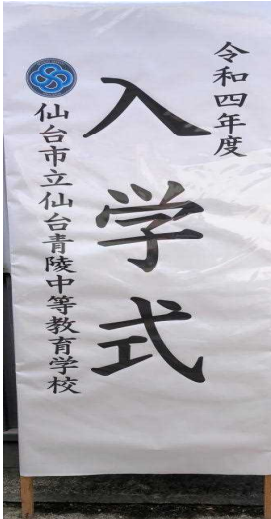 令和四年度
入学式
仙台市立仙台青陵中等教育学校